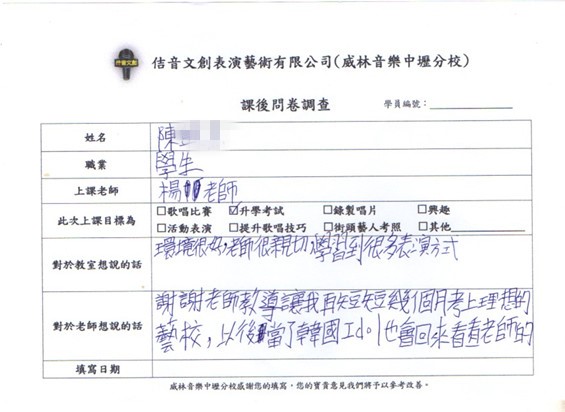 佶音文創
佶音文創表演藝術有限公司(威林音樂中壢分校)
課後問卷調查
學員編號：
姓名 陳
職業 學生
上課老師 楊 老師
此次上課目標為 □歌唱比賽 ☑升學考試 □錄製唱片 □興趣
□活動表演 □提升歌唱技巧 □街頭藝人考照 □其他
對於教室想說的話 環境很好,老師很親切,學習到很多表演方式
對於老師想說的話 謝謝老師教導讓我再短短幾個月考上理想的
藝校，以後當了韓國Idol也會回來看看老師的
填寫日期
威林音樂中壢分校感謝您的填寫，您的寶貴意見我們將予以參考改善。